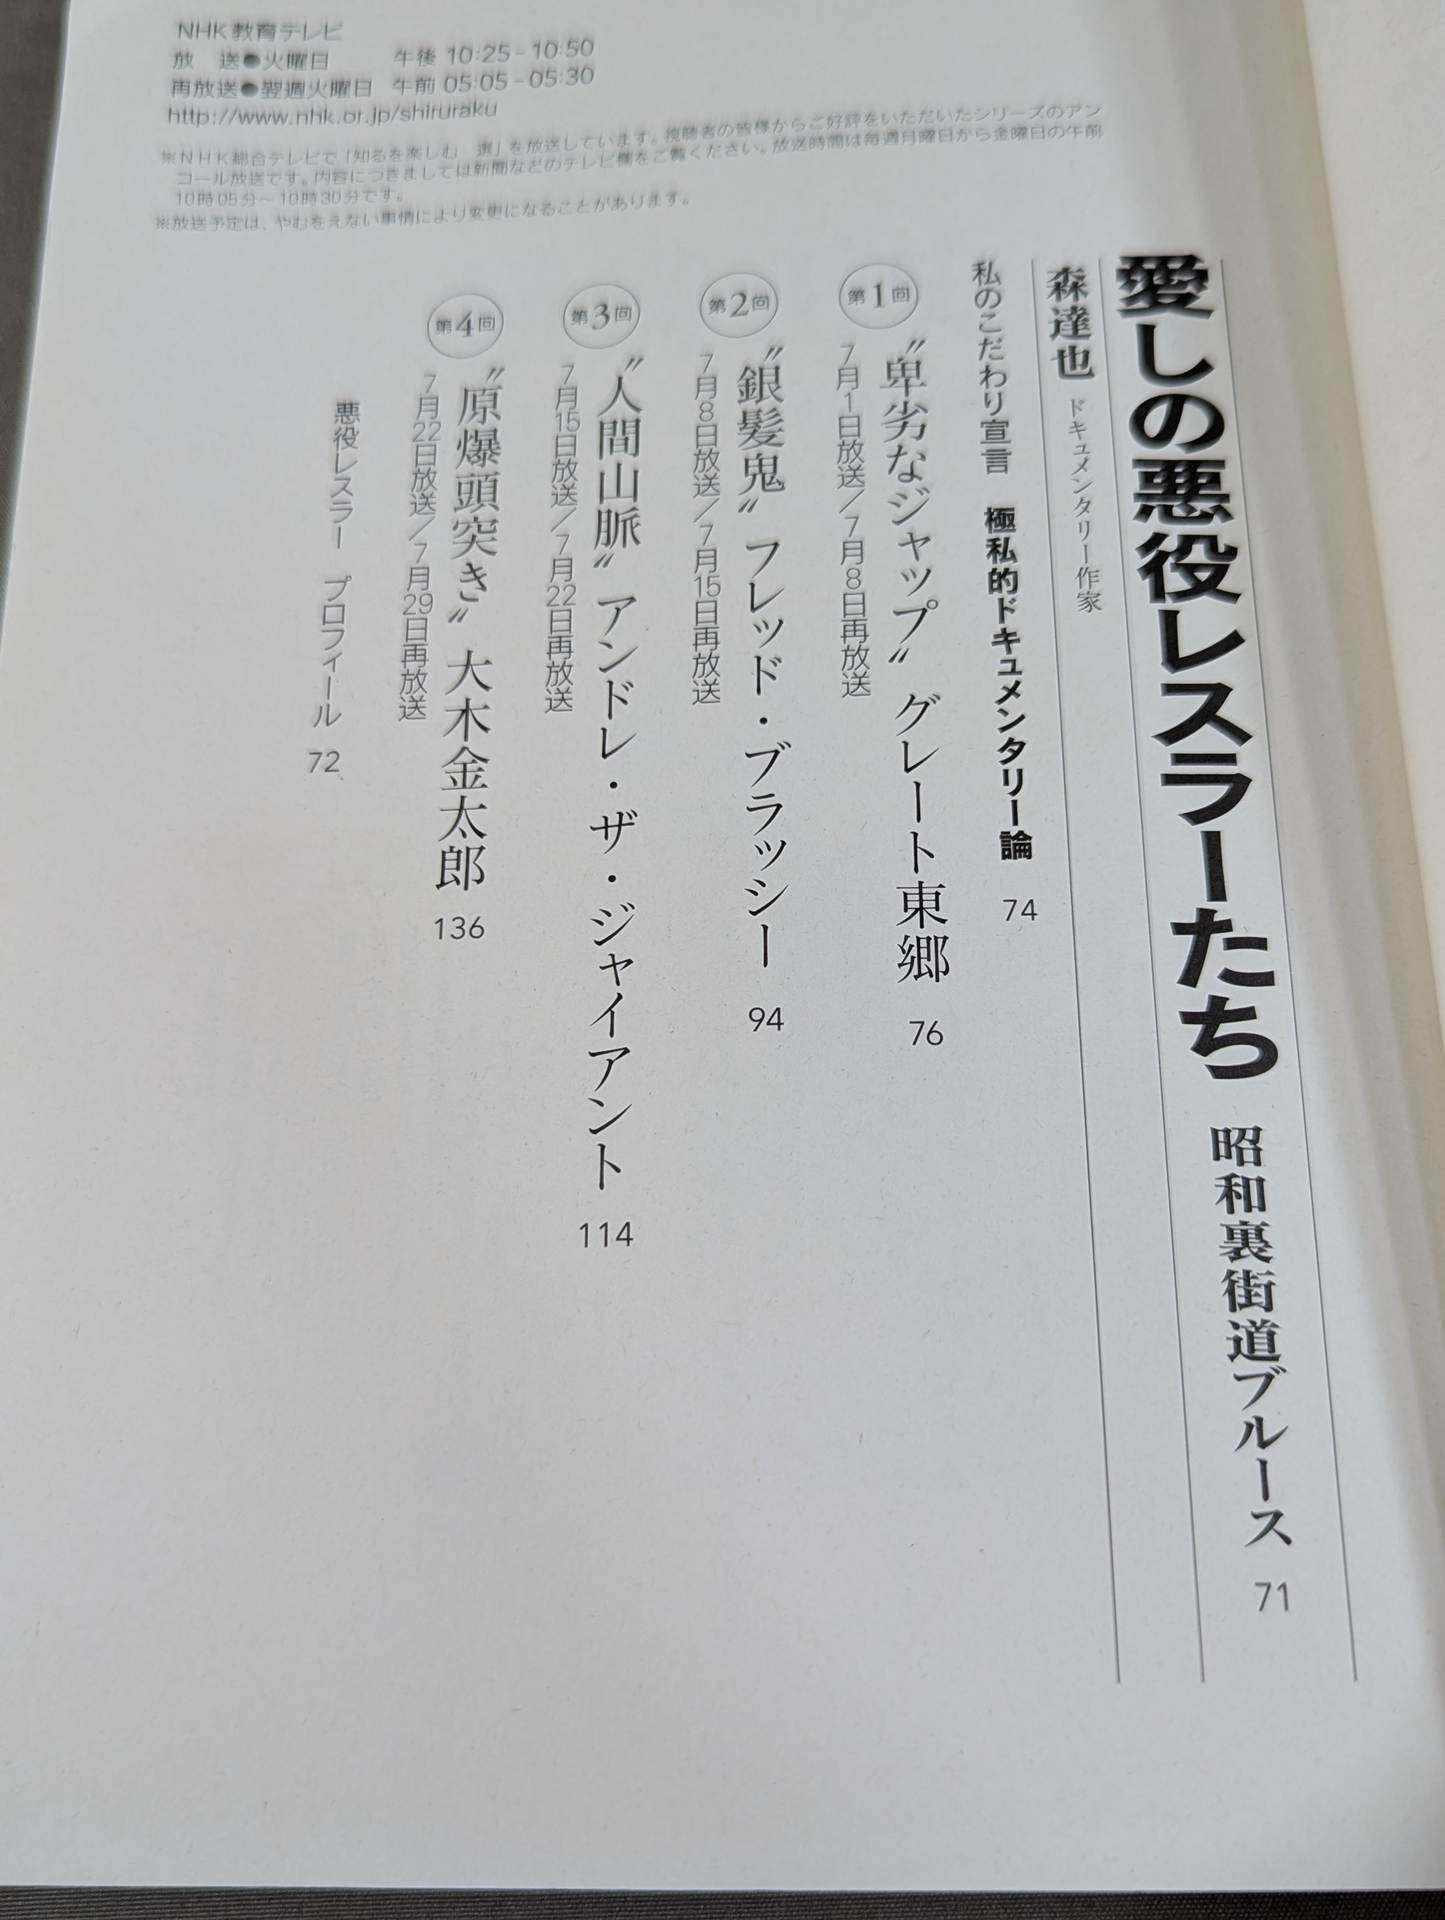 NHK教育テレビ
放　送●火曜日　午後 10:25－10:50
再放送●翌週火曜日　午前 05:05－05:30
http://www.nhk.or.jp/shiruraku
※NHK総合テレビで「知るを楽しむ　選」を放送しています。視聴者の皆様からご好評をいただいたシリーズのアン
コール放送です。内容につきましては新聞などのテレビ欄をご覧ください。放送時間は毎週月曜日から金曜日の午前
10時05分～10時30分です。
※放送予定は、やむをえない事情により変更になることがあります。
愛しの悪役レスラーたち 昭和裏街道ブルース 71
森達也 ドキュメンタリー作家
私のこだわり宣言　極私的ドキュメンタリー論 74
第1回 〝卑劣なジャップ〟グレート東郷 76
7月1日放送／7月8日再放送
第2回 〝銀髪鬼〟フレッド・ブラッシー 94
7月8日放送／7月15日再放送
第3回 〝人間山脈〟アンドレ・ザ・ジャイアント 114
7月15日放送／7月22日再放送
第4回 〝原爆頭突き〟大木金太郎 136
7月22日放送／7月29日再放送
悪役レスラー　プロフィール 72